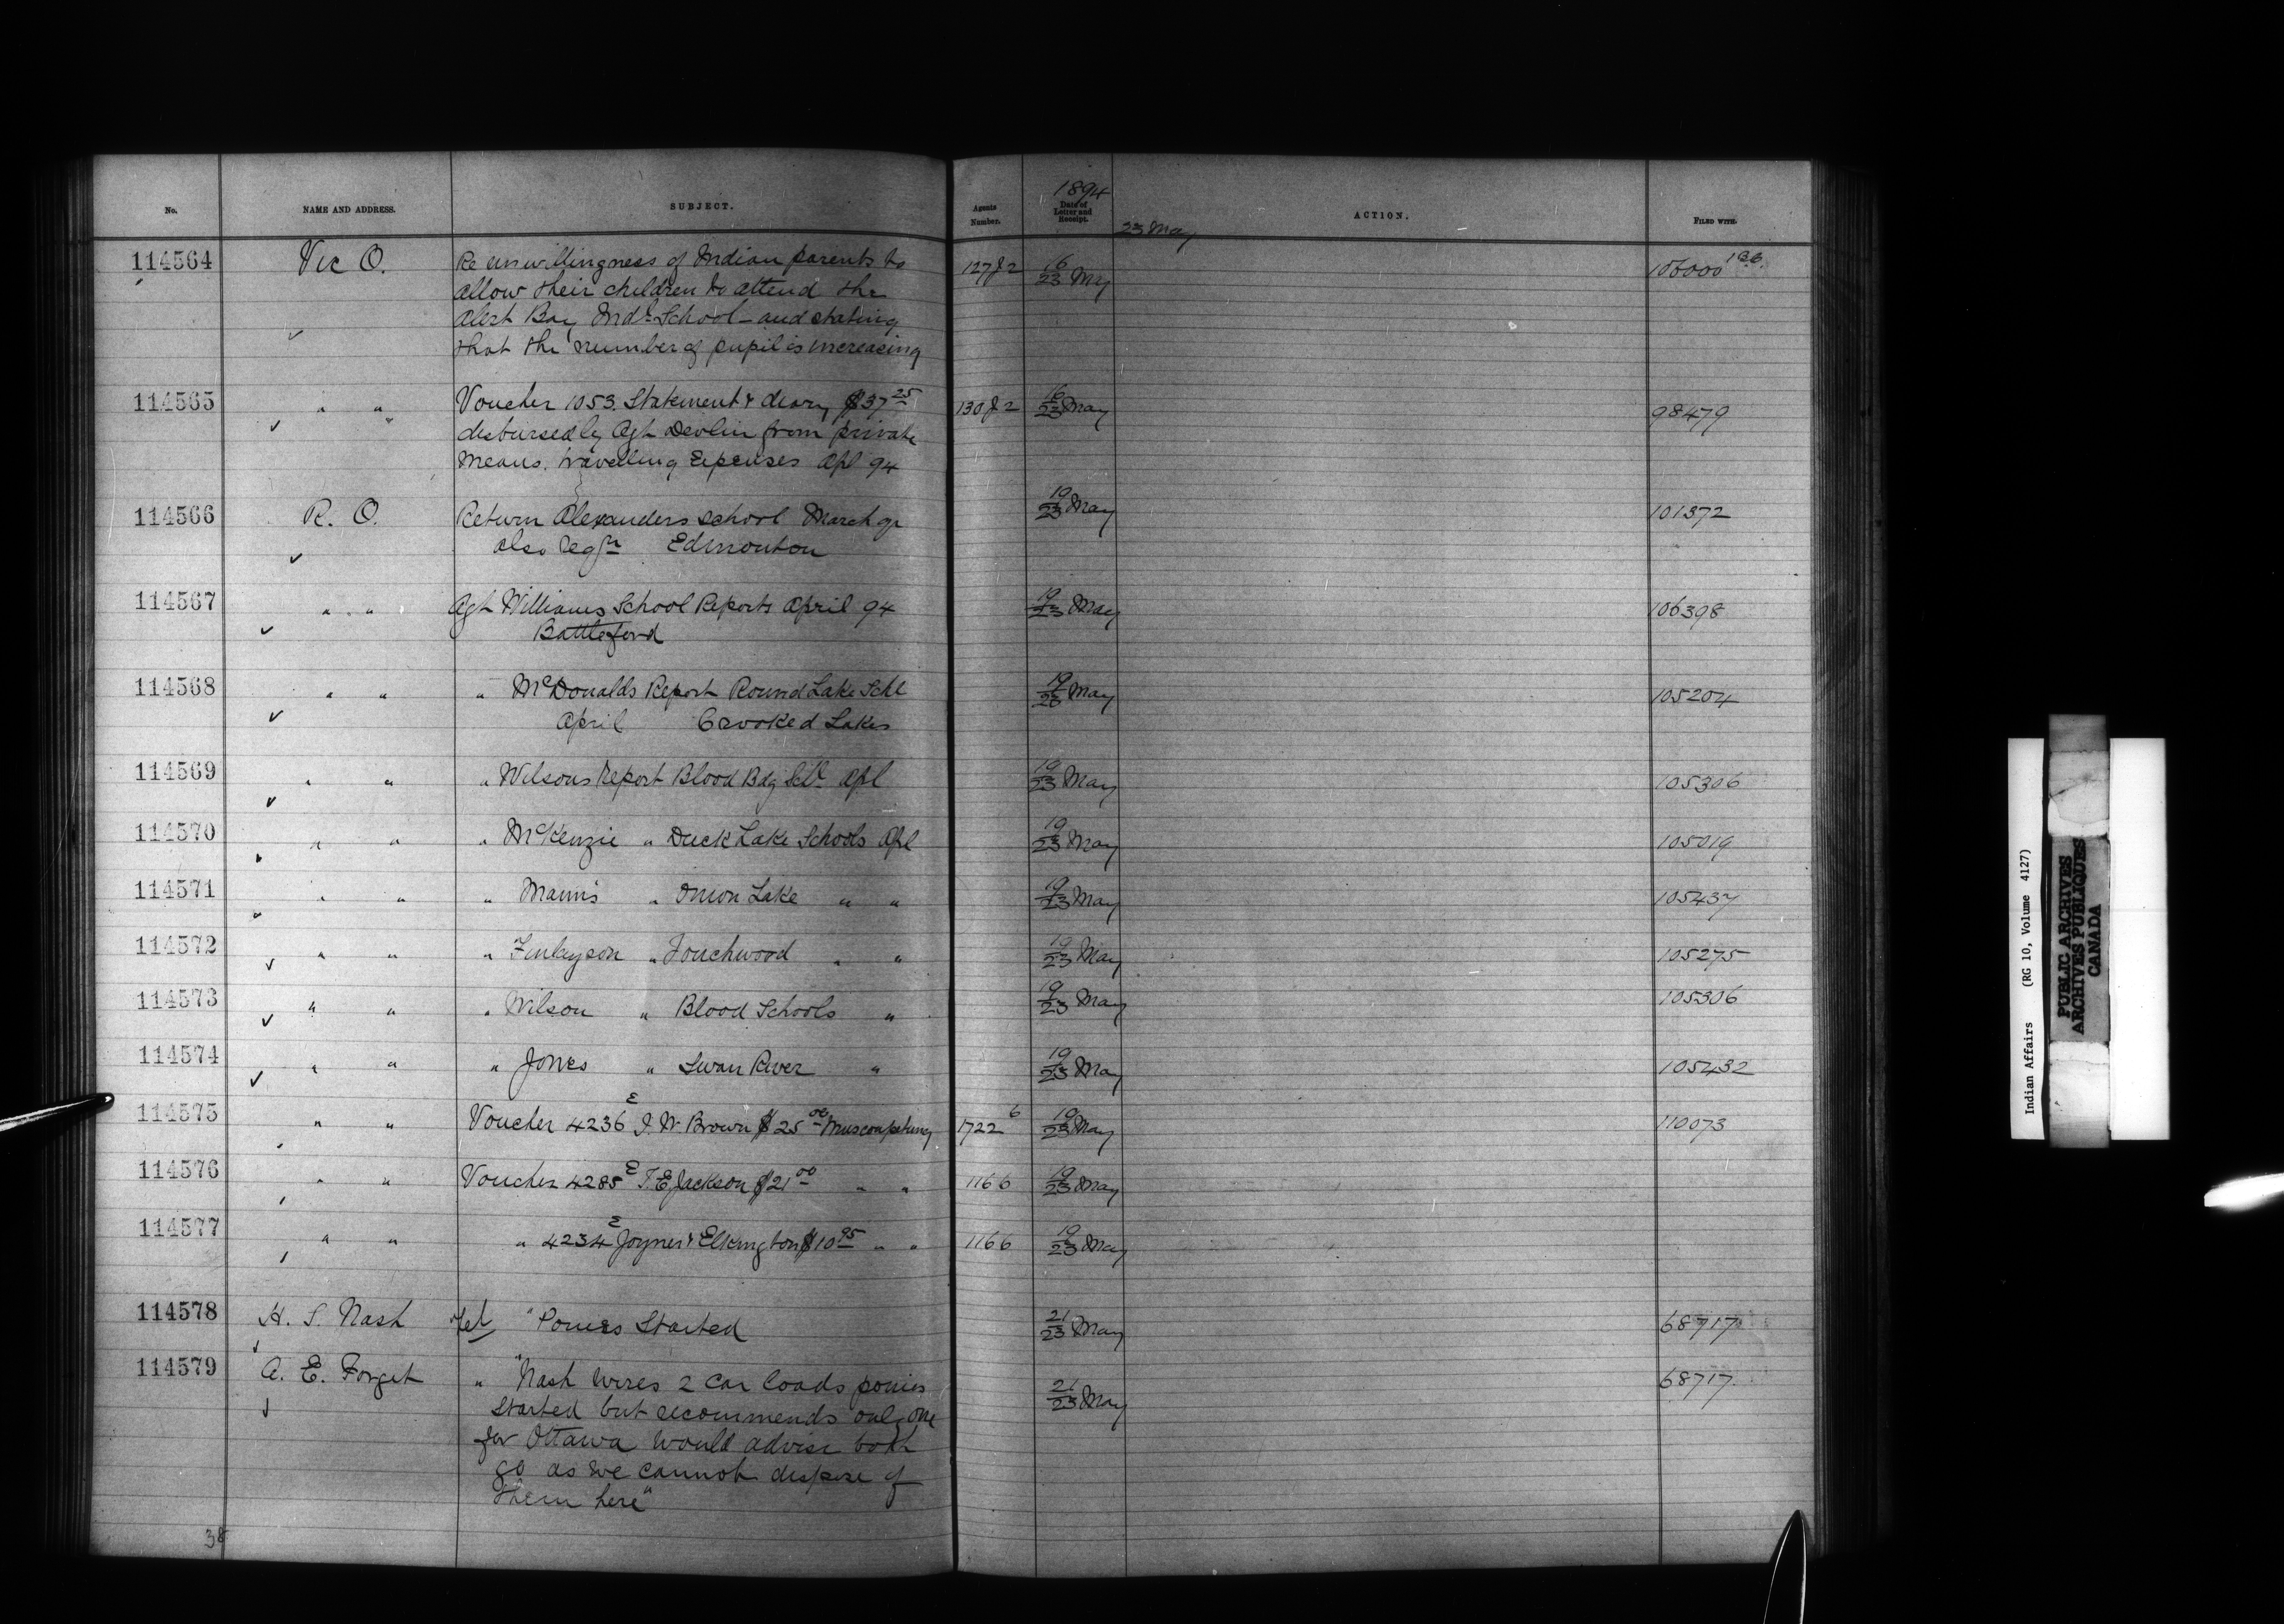 1894
No. NAME AND ADDRESS. SUBJECT. Agents Number. Date of Letter and Receipt. ACTION. FILED WITH.
23 May
114564 Vic O. Re unwillingness of Indian parents to 127 J2 16/23 My 106000
allow their children to attend the
Alert Bay Indl School - and stating
that the number of pupils increasing
114565 " " Voucher 1053. Statement & diary $37 25 130 J2 16/23 May 98479
disbursed by Agt Devlin from private
means. travelling Expenses Apl 94
114566 R. O. Return Alexanders School March qr 19/23 May 101372
also Edmonton
114567 " " Agt Williams School Reports April 94 19/23 May 106398
Battleford
114568 " " " McDonalds Report Round Lake Schl 19/23 May 105204
April Crooked Lakes
114569 " " " Wilsons Report Blood Bdg Schl Apl 19/23 May 105306
114570 " " " McKenzie " Duck Lake Schools Apl 19/23 May 105019
114571 " " " Manns " Onion Lake " " 19/23 May 105437
114572 " " " Finlayson " Touchwood " " 19/23 May 105275
114573 " " " Wilson " Blood Schools " 19/23 May 105306
114574 " " " Jones " Swan River " 19/23 May 105432
114575 " " Voucher 4236 E J. W. Brown $25 00 Muscowpetung 1722 6 19/23 May 110073
114576 " " Voucher 4285 E T. E. Jackson $21 00 " " 1166 19/23 May
114577 " " " 4234 E Joyner & Elkington $10 95 " " 1166 19/23 May
114578 H. S. Nash Tel "Ponies Started 21/23 May 68717
114579 A. E. Forget " "Nash wires 2 car loads ponies 21/23 May 68717
started but recommends only one
for Ottawa would advise both
go as we cannot dispose of
them here"
38
Indian Affairs (RG 10, Volume 4127)
PUBLIC ARCHIVES
ARCHIVES PUBLIQUES
CANADA